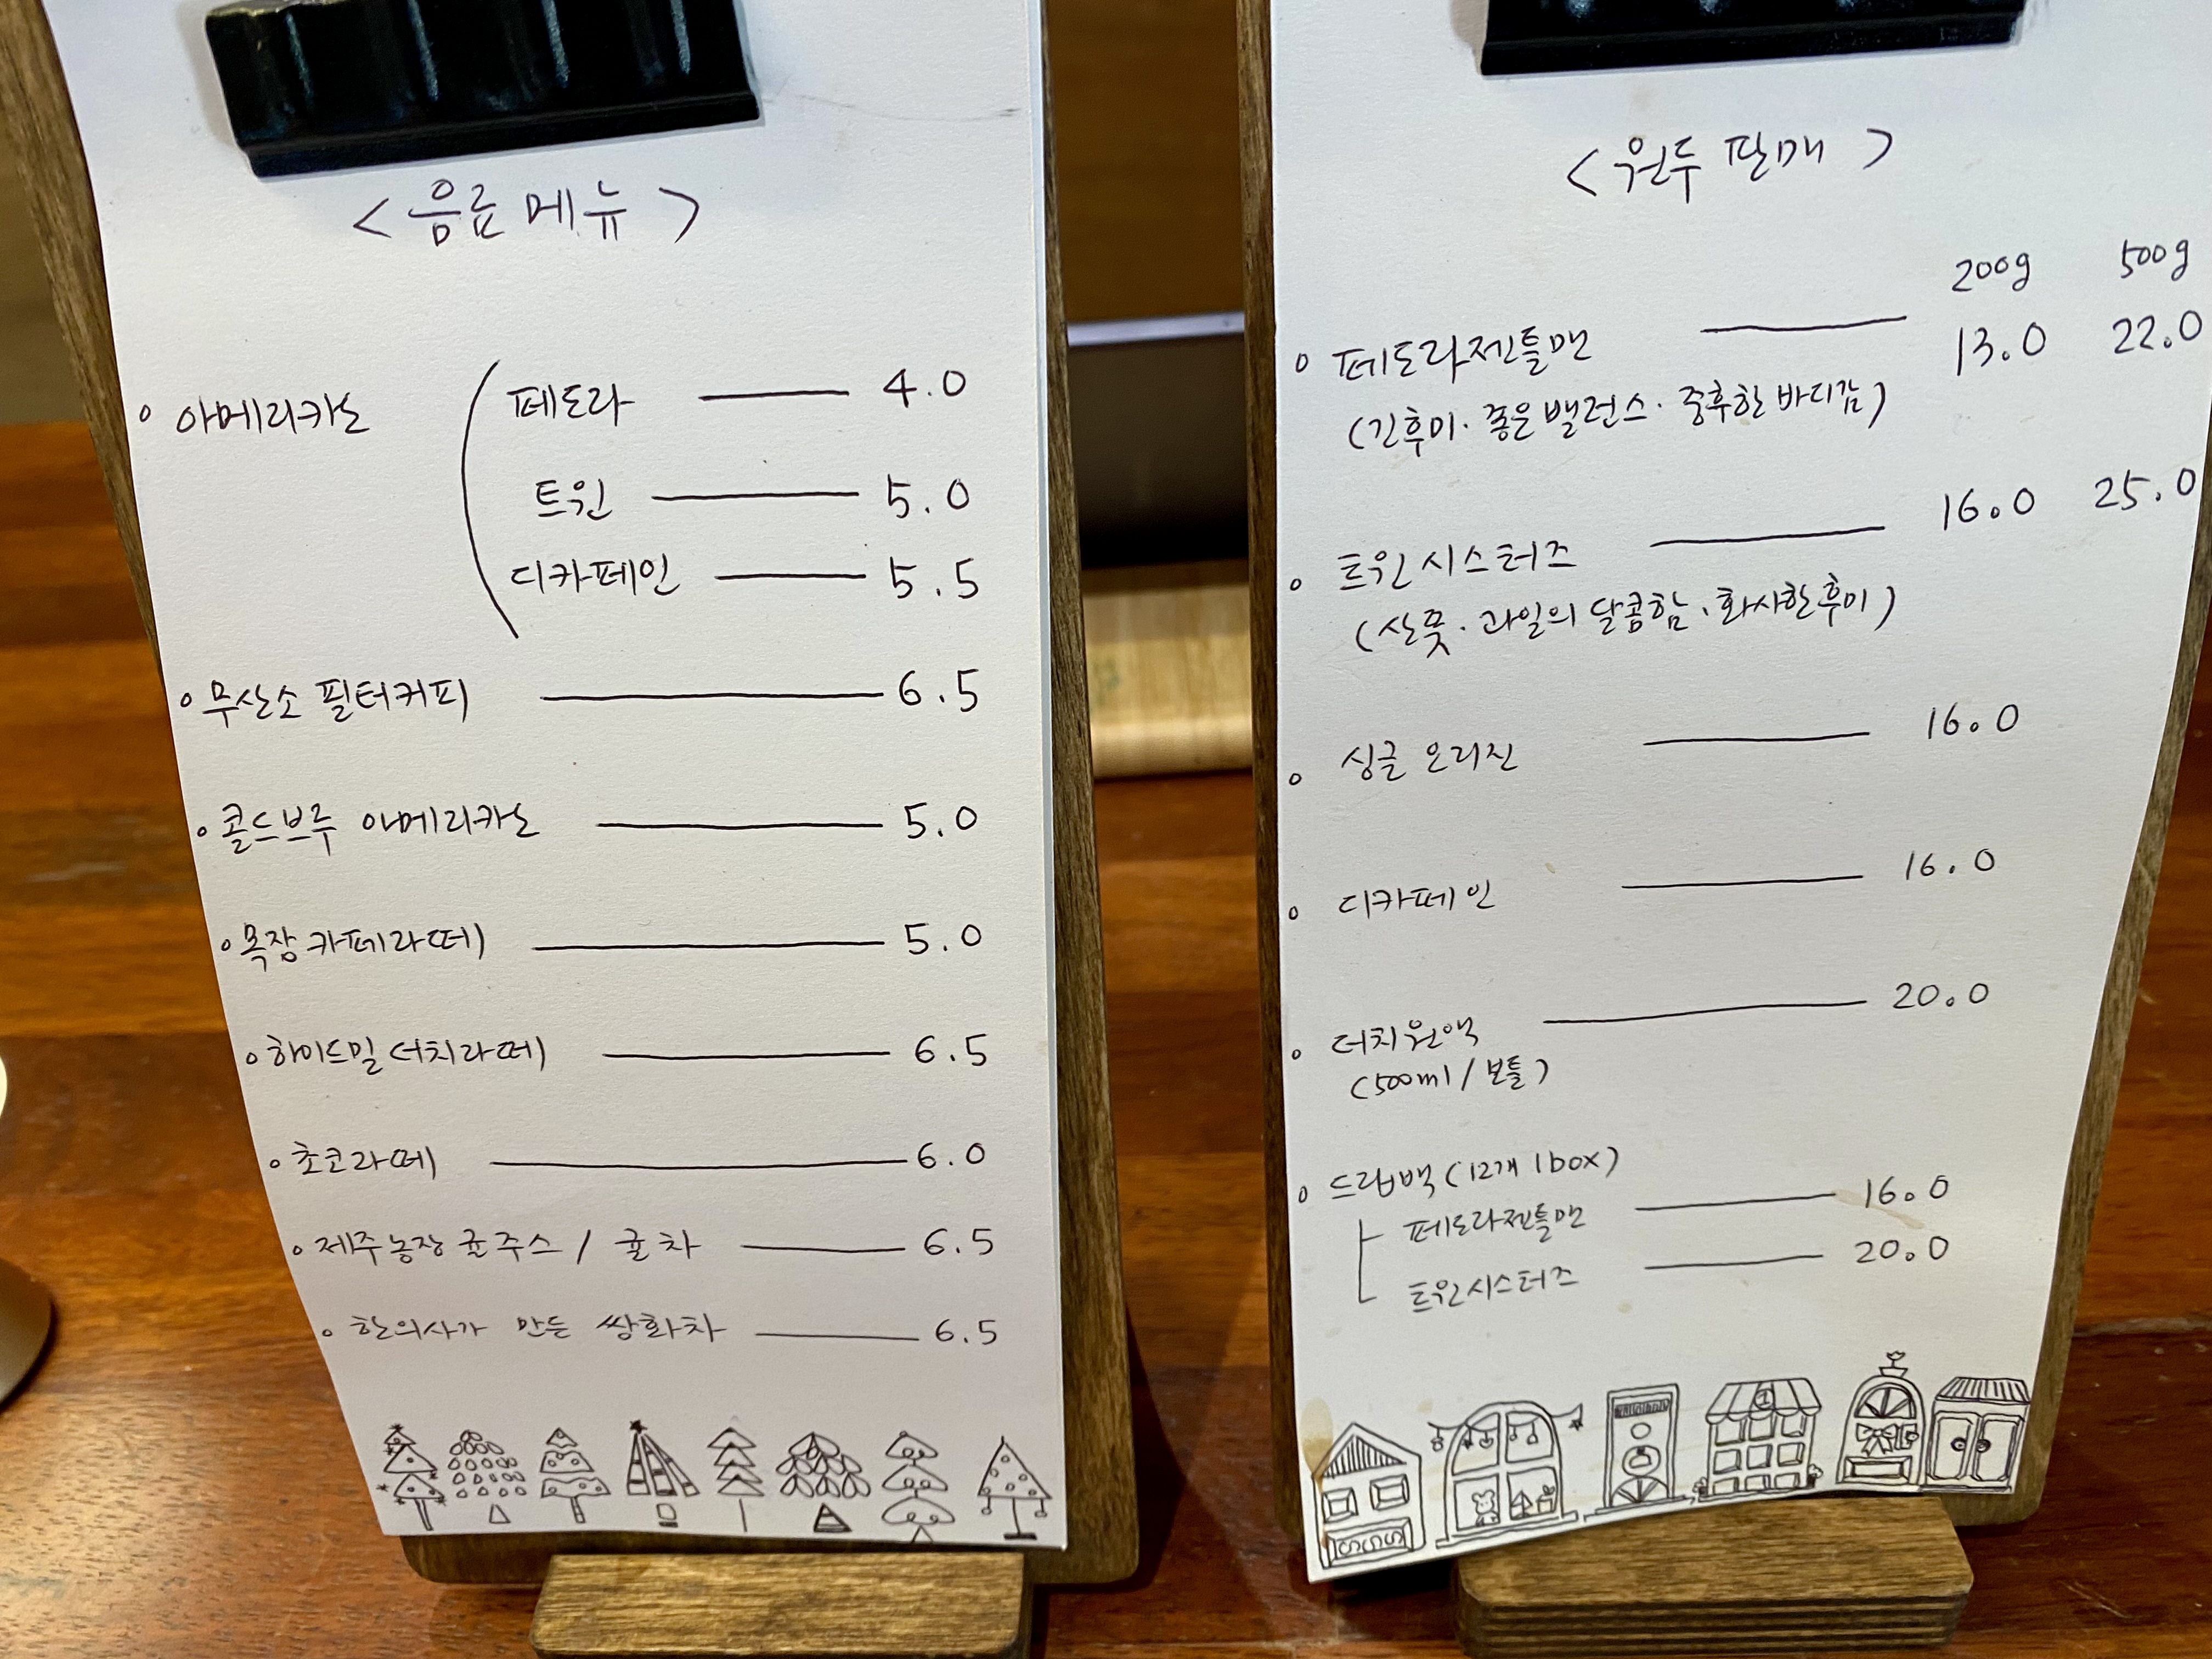 <음료 메뉴>
◦ 아메리카노 ( 페도라 —— 4.0
트윈 —— 5.0
디카페인 —— 5.5
◦ 무산소 필터커피 —— 6.5
◦ 콜드브루 아메리카노 —— 5.0
◦ 목장 카페라떼 —— 5.0
◦ 하이드밀 더치라떼 —— 6.5
◦ 초코라떼 —— 6.0
◦ 제주농장 귤주스 / 귤차 —— 6.5
◦ 한의사가 만든 쌍화차 —— 6.5
<원두 판매>
200g 500g
◦ 페도라젠틀맨 —— 13.0 22.0
(긴후미· 좋은밸런스· 중후한 바디감)
◦ 트윈시스터즈 —— 16.0 25.0
(산뜻· 과일의 달콤함· 화사한후미)
◦ 싱글 오리진 —— 16.0
◦ 디카페인 —— 16.0
◦ 더치원액 —— 20.0
(500ml / 보틀)
◦ 드립백 (12개 1box)
페도라젠틀맨 —— 16.0
트윈시스터즈 —— 20.0